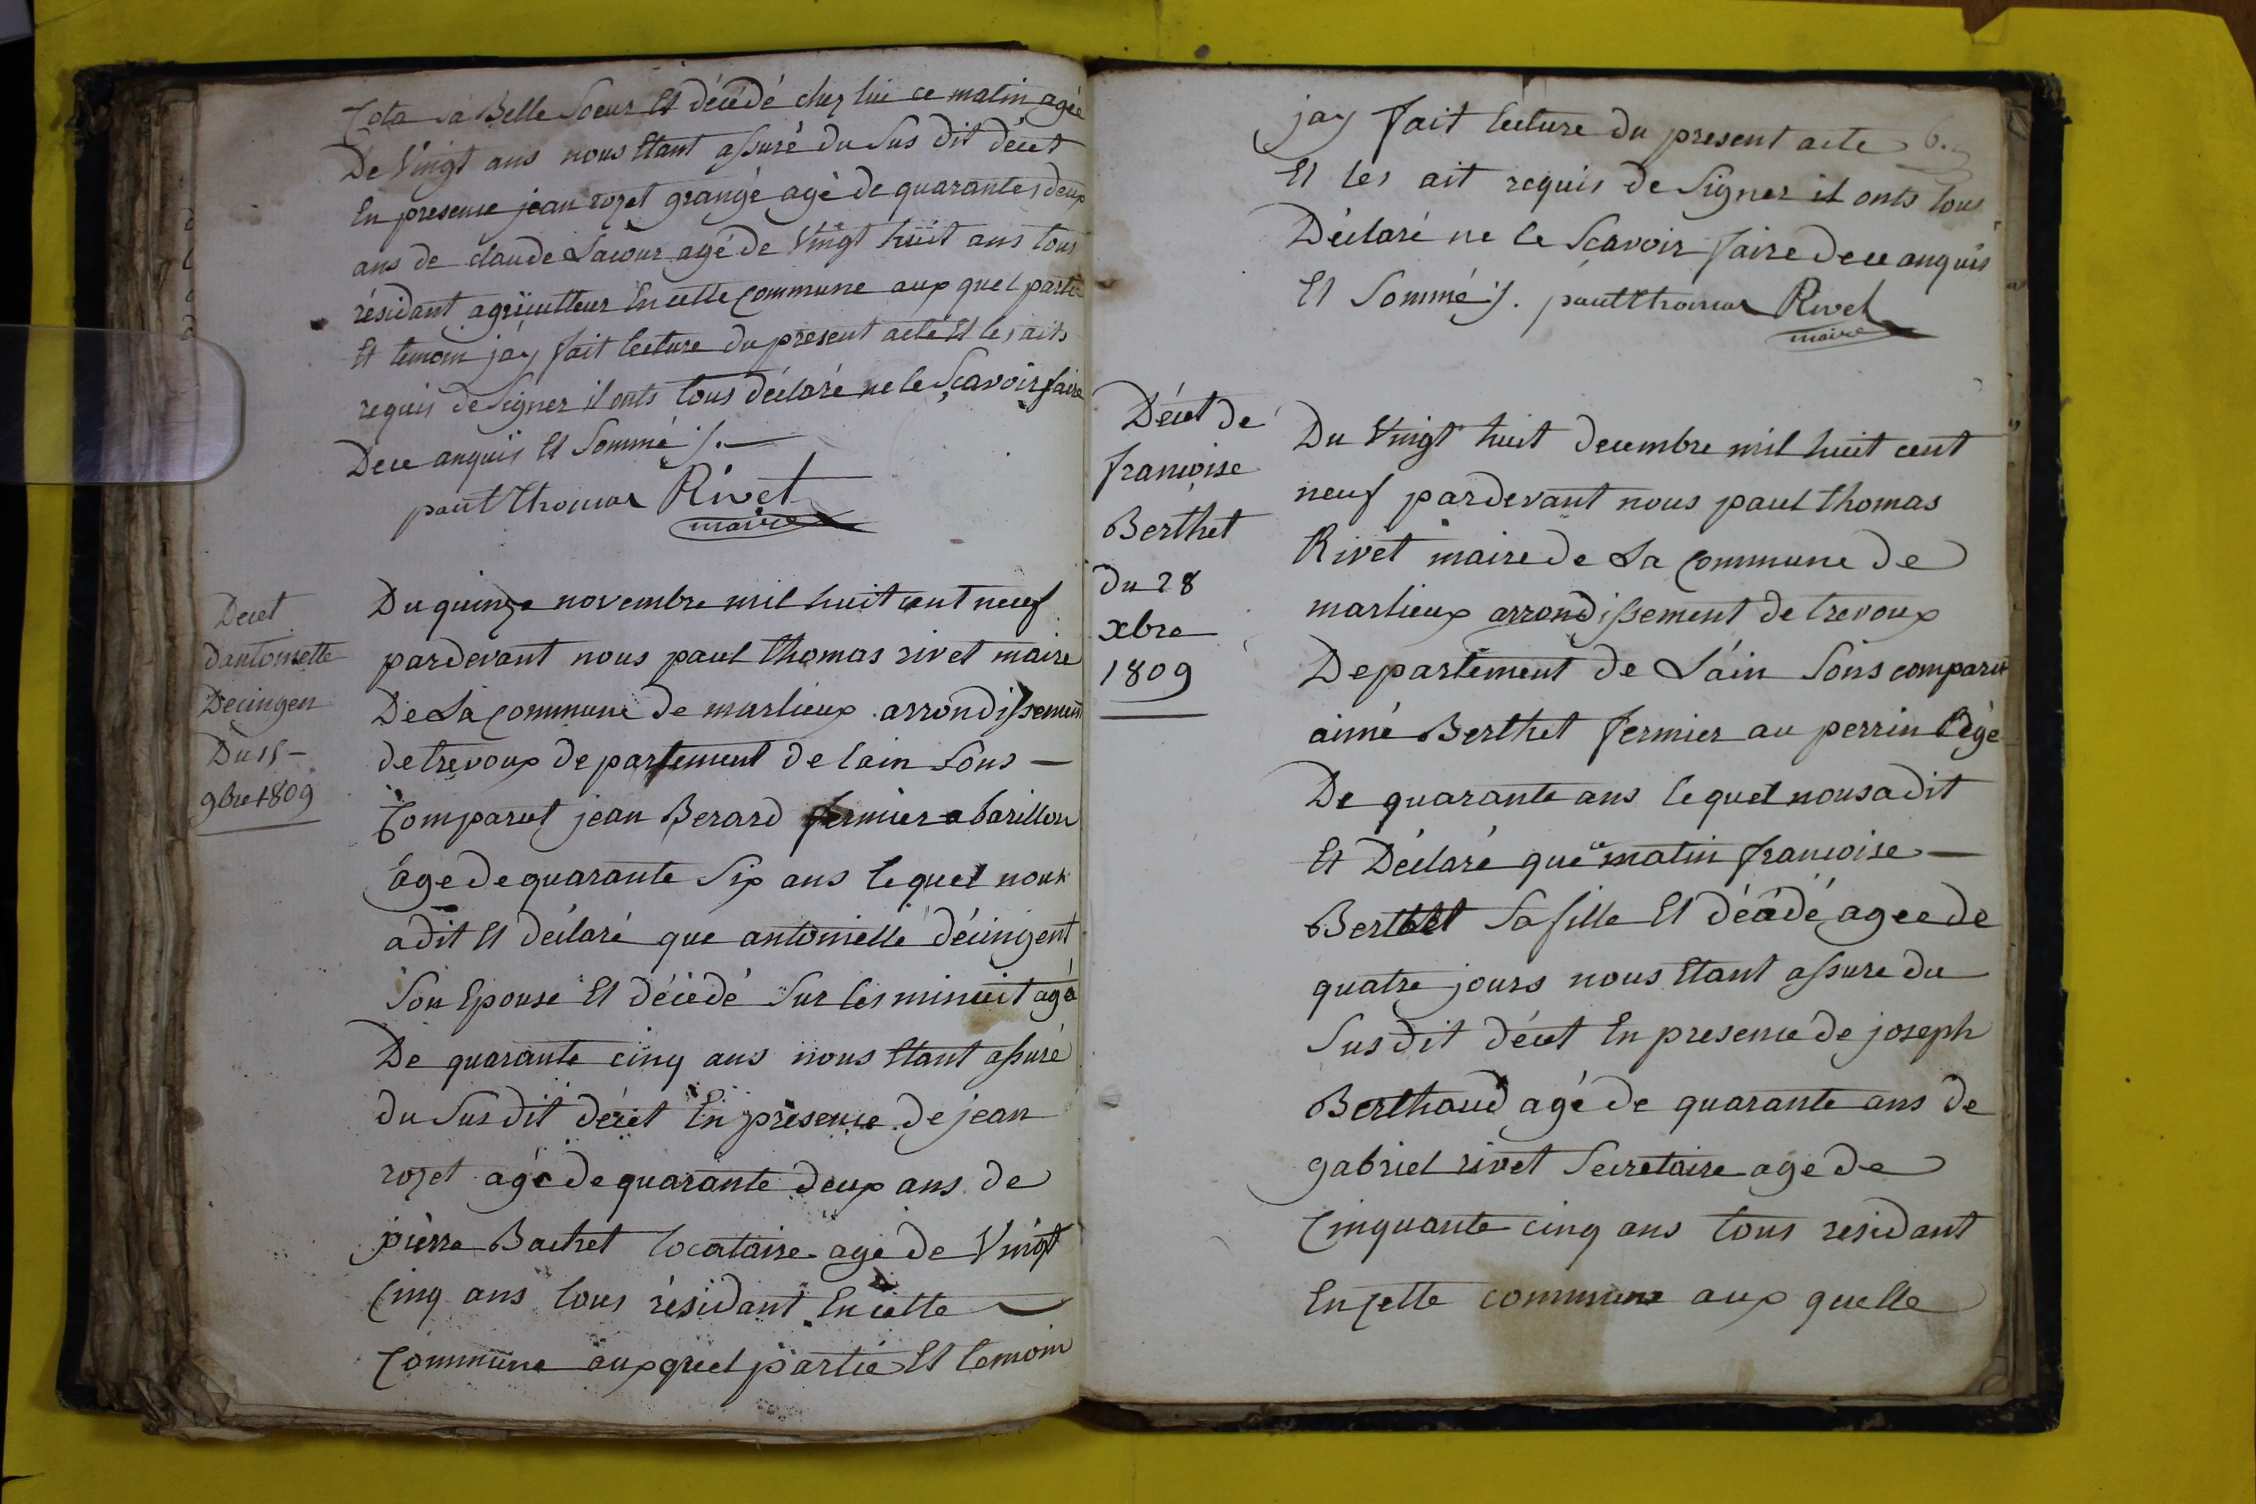 Cota sa Belle Soeur Et décédé chez lui ce matin agée
De Vingt ans nous Etant assuré du Sus dit décet
En presence jean rozet grangé agé de quarante deux
ans de claude Lacour agé de Vingt huit ans tous
résidant agriculteur En cette Commune aux quel partie
Et temoin jay fait lecture du present acte Et les aits
requis de Signer il onts tous déclaré ne le Scavoir faire
De ce anquis Et Sommé ./.
paul thomas Rivet
maire
Decet
dantoinette
Decingen
Du 15
9bre 1809
Du quinze novembre mil huit cent neuf
pardevant nous paul thomas rivet maire
De La Commune de marlieux arrondissement
de trevoux departement de lain Sous
Comparut jean Berard fermier a barillon
âge de quarante Six ans le quel nous
a dit Et déclaré que antoinette décingent
Son Epouse Et décédé Sur les minuit agé
De quarante cinq ans nous Etant assuré
du Sus dit décet En presence de jean
rozet agé de quarante deux ans de
pierre Bachet locataire agé de Vingt
Cinq ans tous résidant En cette
Commune aux quel partie Et temoin
6.
jay fait lecture du present acte
Et les ait requis de Signer il onts tous
Déclaré ne le Scavoir faire de ce anquis
Et Sommé ./. paul thomas Rivet
maire
Décet de
francoise
Berthet
du 28
xbre
1809
Du Vingt huit decembre mil huit cent
neuf pardevant nous paul thomas
Rivet maire de La Commune de
marlieux arrondissement de trevoux
Departement de L'ain Sous comparu
aimé Berthet fermier au perrin âgé
De quarante ans le quel nous a dit
Et Déclaré que ce matin francoise
Berthet Sa fille Et décédé agee de
quatre jours nous Etant assure du
Sus dit décet En presence de joseph
Berthaud agé de quarante ans de
gabriel rivet Secretaire age de
Cinquante cinq ans tous residant
En Cette commune aux quelle